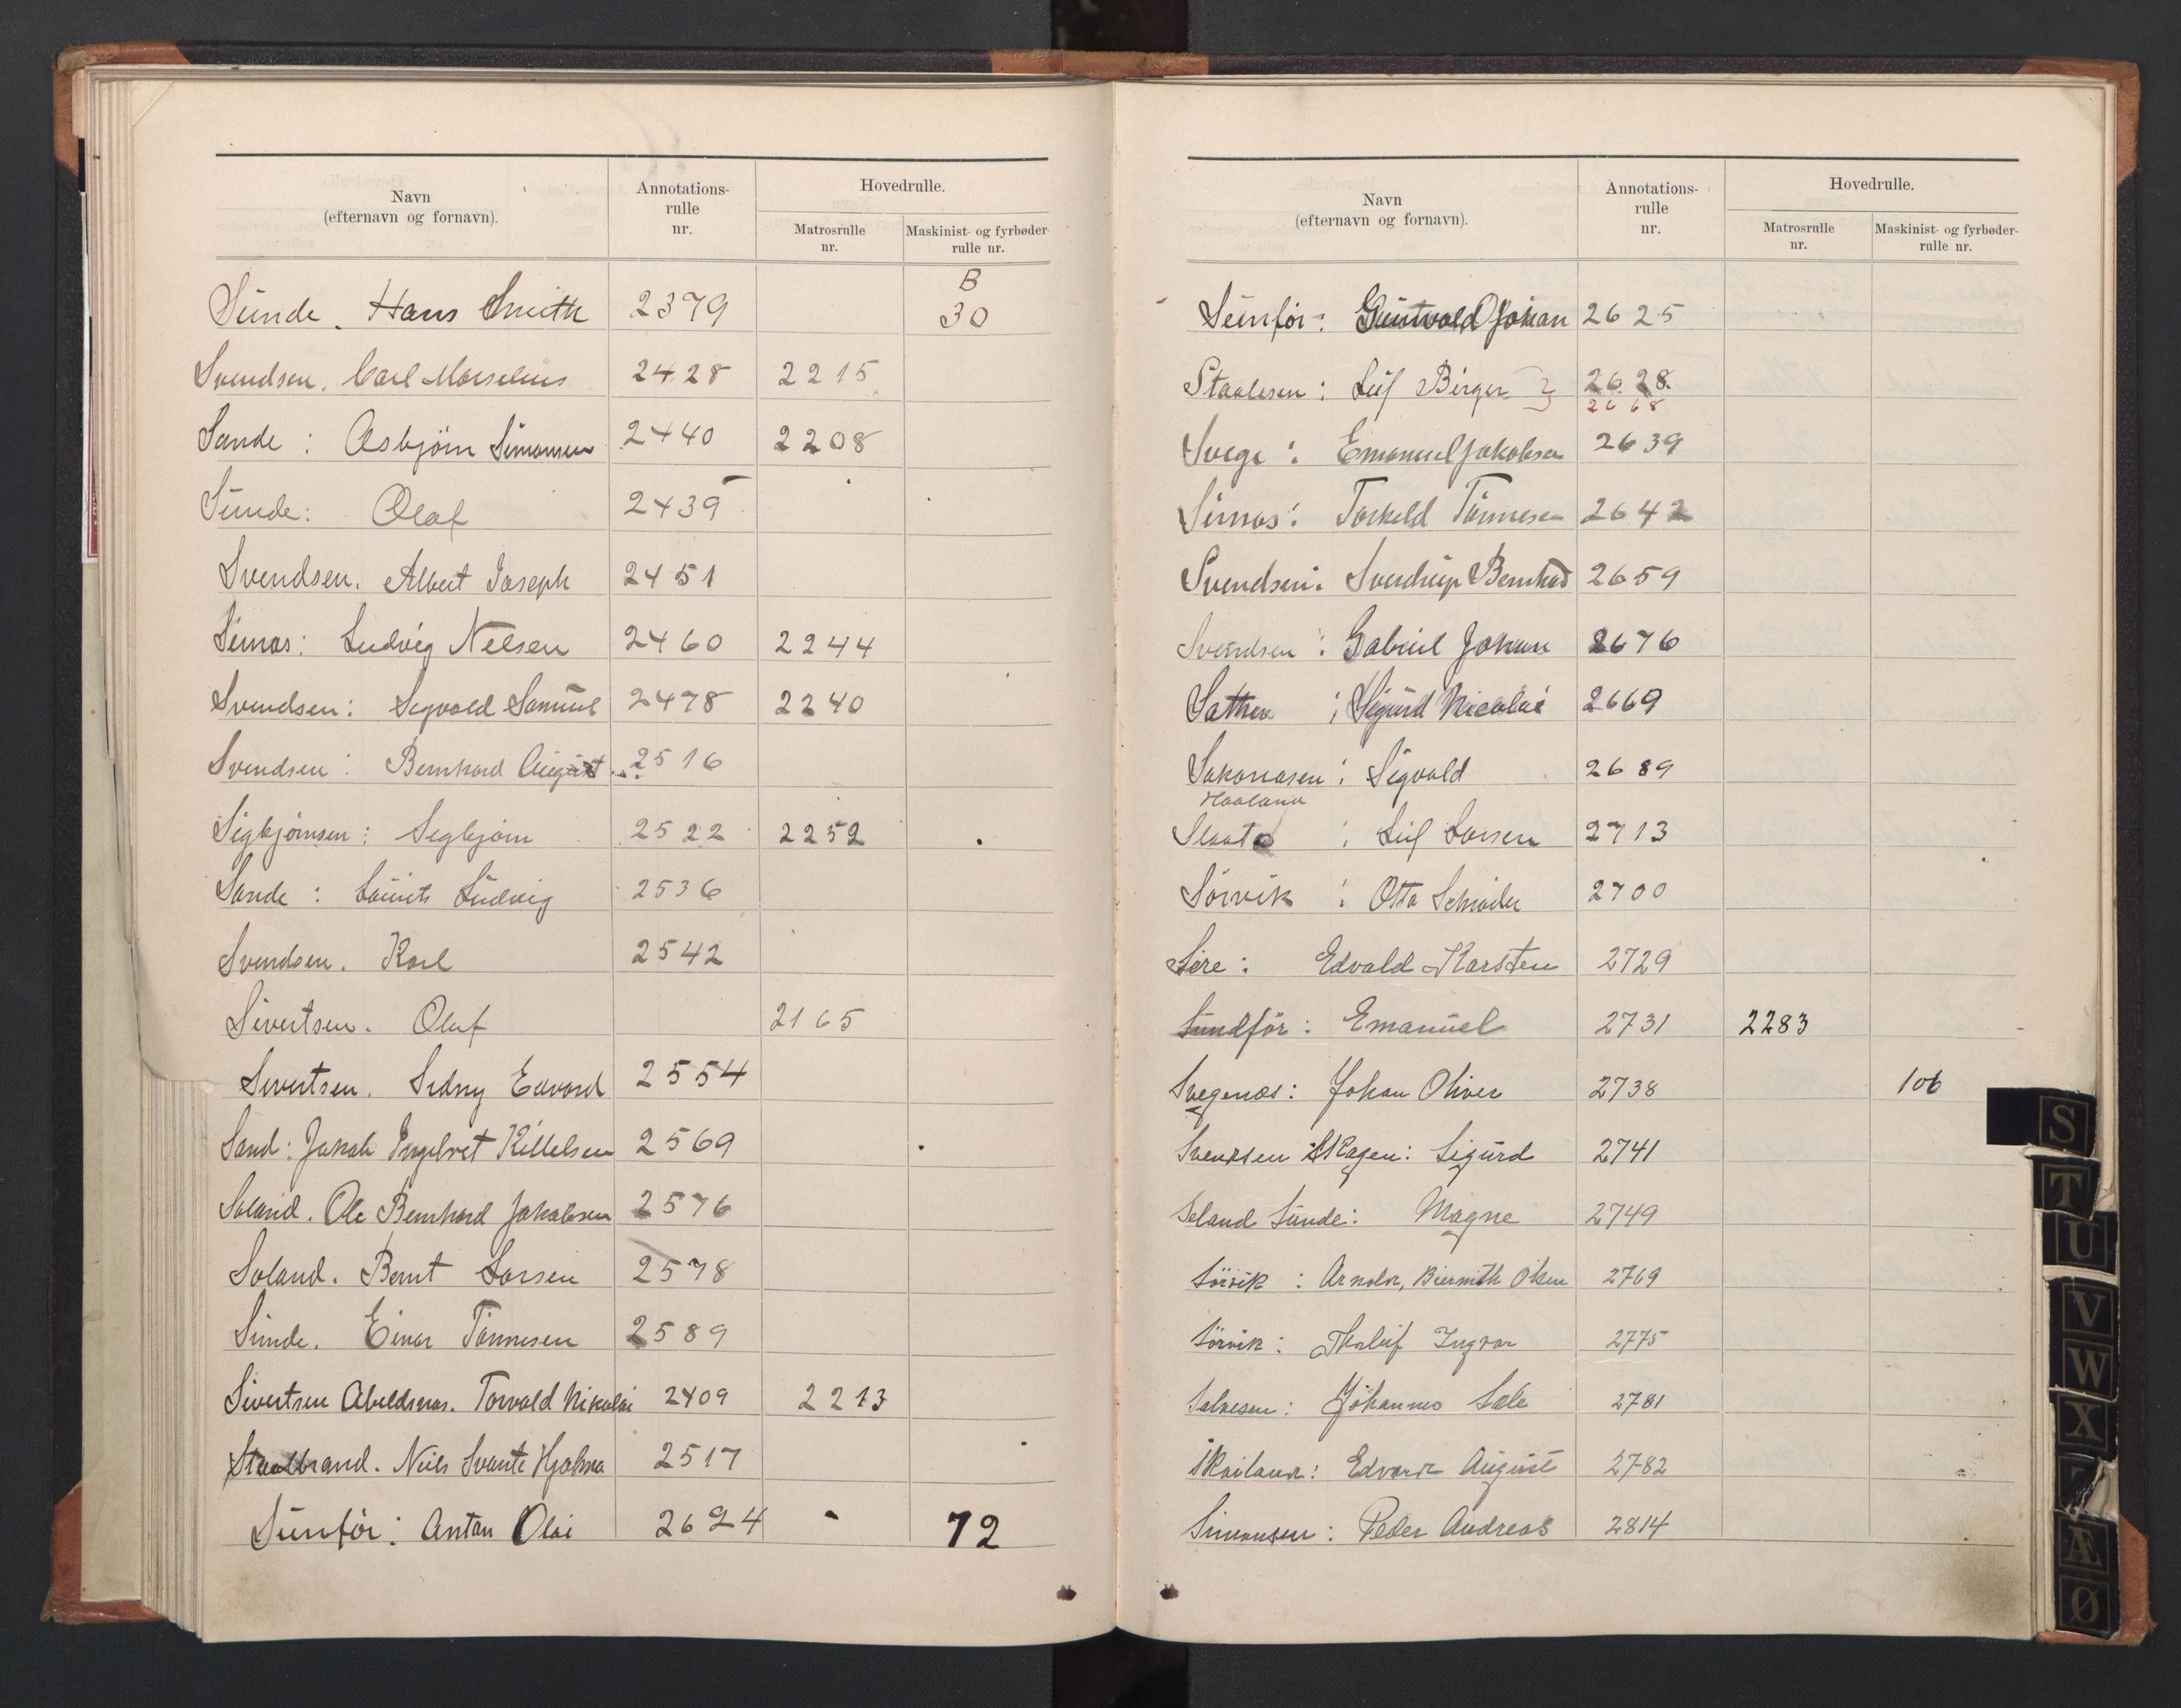 Navn
(efternavn og fornavn).
Annotations-
rulle
nr.
Hovedrulle.
Matrosrulle
nr.
Maskinist- og fyrbøder-
rulle nr.
B
Sunde. Hans Smith 2379 30
Svendsen. Carl Marselius 2428 2215
Sande: Asbjörn Simonsen 2440 2208
Sunde: Olaf 2439
Svendsen. Albert Joseph 2451
Simos: Ludvig Nilsen 2460 2244
Svendsen: Sigvald Samuel 2478 2240
Svendsen: Bernhard August 2516
Sigbjörnsen: Sigbjörn 2522 2252
Sande: Laurits Ludvig 2536
Svendsen. Karl 2542
Sivertsen. Oluf 2165
Sivertsen. Sidny Edvard 2554
Sand: Jakob Ingelvet Killelsen 2569
Soland. Ole Bernhard Jakobsen 2576
Soland. Bernt Larsen 2578
Sunde. Einar Tönnesen 2589
Sivertsen Abeldsnæs. Torvald Nikolai 2409 2213
Staalbrand. Nils Svante Hjalma 2517
Sunför: Anton Olai 2624 72
Navn
(efternavn og fornavn).
Annotations-
rulle
nr.
Hovedrulle.
Matrosrulle
nr.
Maskinist- og fyrbøder-
rulle nr.
Sunför: Guntvald Johan 2625
Staalesen: Leif Birger 2628
2668
Svege: Emanuel Jakobsen 2639
Simos: Torkeld Tönnesen 2642
Svendsen: Sverdrup Bernhad 2659
Svendsen: Gabriel Johan 2676
Sathre: Sigurd Nicolai 2669
Sakariasen: Sigvald 2689
Haaland
Slaato: Leif Larsen 2713
Sörvik: Otto Schröder 2700
Sire: Edvald Karsten 2729
Sundför: Emanuel 2731 2283
Svegenæs: Johan Oliver 2738 106
Svendsen Skagen: Sigurd 2741
Seland Sunde: Magne 2749
Sörvik: Arnold, Olsen 2769
Sörvik: Thorleif Ingvar 2775
Salvesen: Johannes Sele 2781
Skailand: Edvard August 2782
Simonsen: Peder Andreas 2814
S
T
U
V
W
X
Æ
Ø